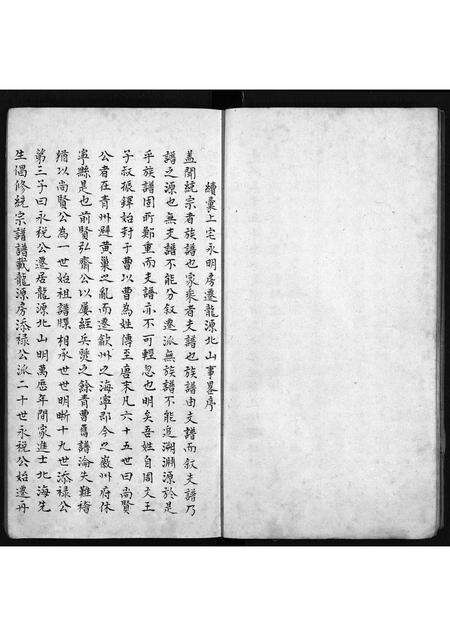 續彙上宅永明房遷龍源北山事畧序
蓋聞統宗者族譜也家乘者支譜也族譜由支譜而叙支譜乃
譜之源也無支譜不能分叙遷派無族譜不能追溯淵源於是
乎族譜固所鄭重而支譜亦不可輕忽也明矣吾姓自周文王
子叔振鐸始封于曹以曹為姓傳至唐末凡六十五世曰尚賢
公者在青州避黃巢之亂而遷歙州之海寧即今之徽州府休
寧縣是也前賢弘齋公以屢經兵燹之餘青曹舊譜淪失難稽
爰以尚賢公為一世始祖譜牒相承世世明晰十九世添祿公
第三子曰永税公遷居龍源北山明萬歷年間家進士北海先
生倡修統宗譜譜載龍源房添祿公派二十世永税公始遷丹